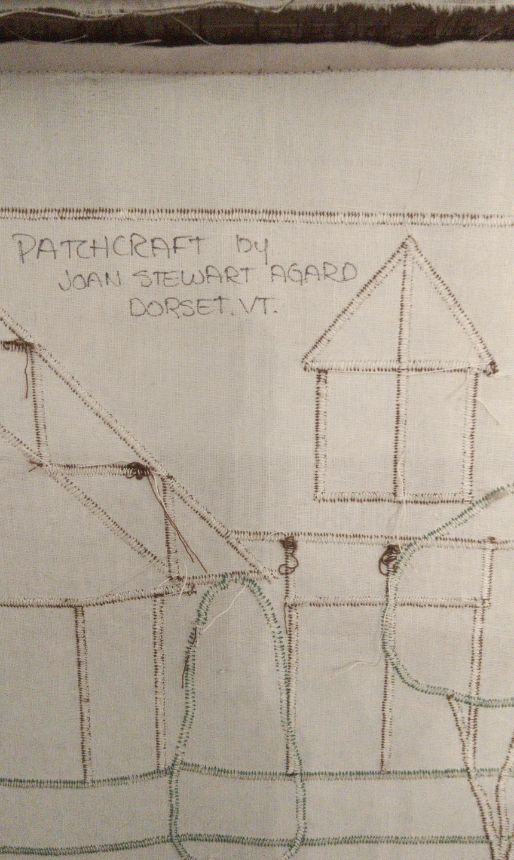 PATCHCRAFT by
JOAN STEWART AGARD
DORSET. VT.